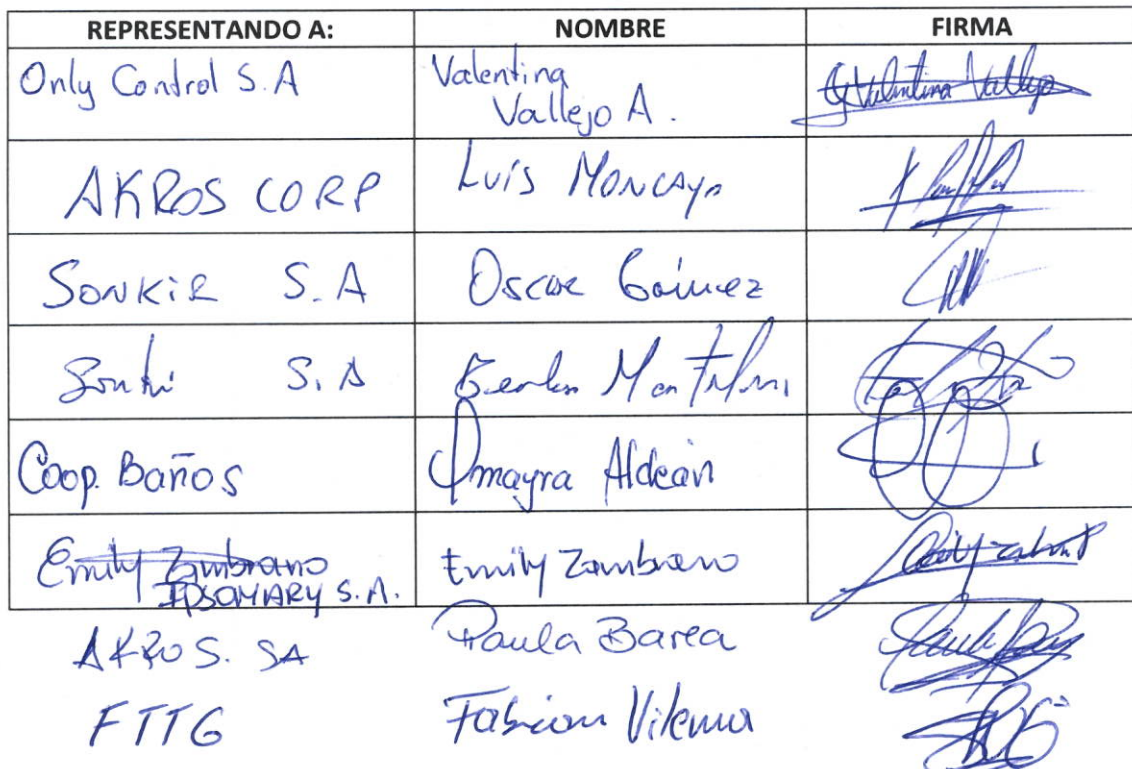 REPRESENTANDO A: NOMBRE FIRMA
Only Control S.A Valentina
Vallejo A. Valentina Vallejo
AKROS CORP Luis Moncayo
SONKIR S.A Oscar Gómez
S.A
Coop. Baños Omayra Aldeán
Emily Zambrano Emily Zambrano
IPSOMARY S.A.
AKROS. SA Paula Barea
FTTG Fabian Vilema